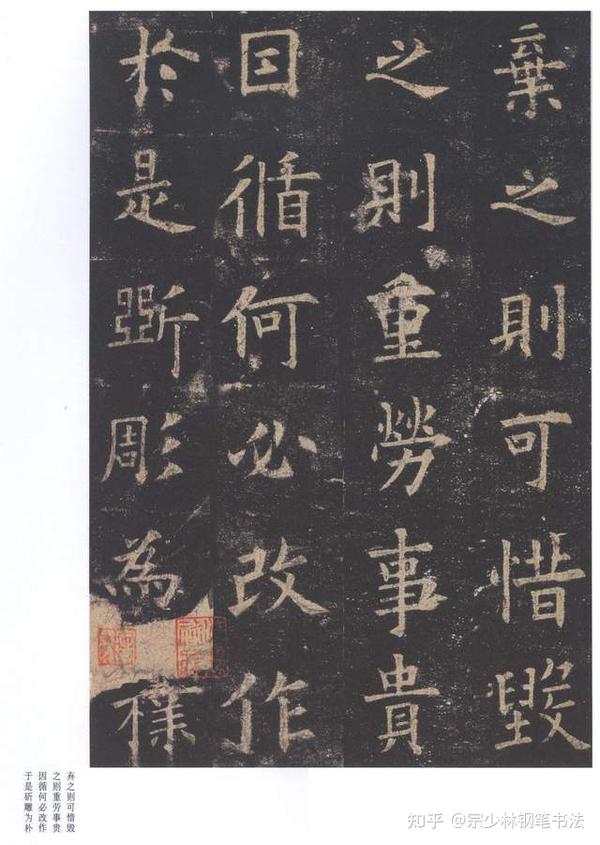 棄之則可惜毀
之則重勞事貴
因循何必改作
於是斲彫為樸
弃之则可惜毁
之则重劳事贵
因循何必改作
于是斫雕为朴
知乎 @宗少林钢笔书法